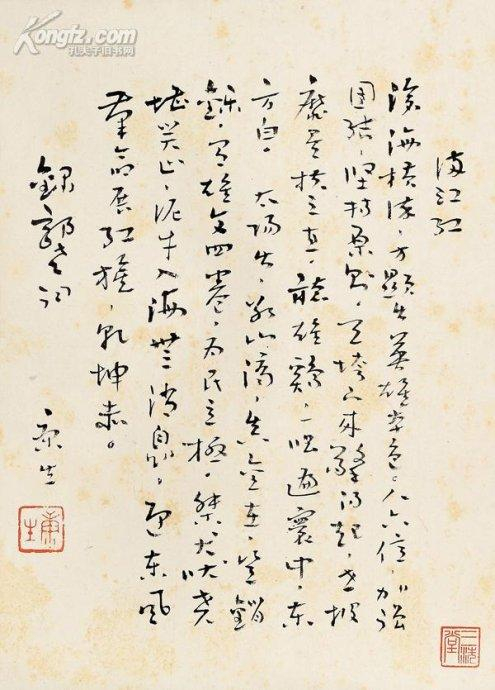 Kongfz.com
孔夫子旧书网
满江红
沧海横流,方显出英雄本色。人六億,加強
团结,坚持原则,天垮下来擎得起,世披
靡矣扶之直。聽雄鷄,一唱遍寰中,东
方白。太阳出,冰山滴,真金在,岂銷
鑠,有雄文四卷,为民立極。桀犬吠尧
堪笑止,泥牛入海無消息。迎东风
革命展红旗,乾坤赤。
錄郭老詞
康生
康生
三洗堂